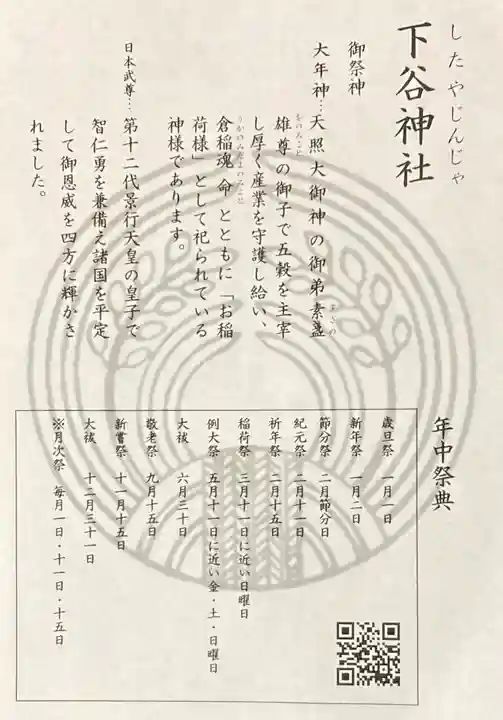 したやじんじゃ
下谷神社
御祭神
大年神…天照大御神の御弟素盞
すさの
雄尊の御子で五穀を主宰
をのみこと
し厚く産業を守護し給い、
倉稲魂命とともに「お稲
うかのみたまのみこと
荷様」として祀られている
神様であります。
日本武尊…第十二代景行天皇の皇子で
智仁勇を兼備え諸国を平定
して御恩威を四方に輝かさ
れました。
年中祭典
歳旦祭 一月一日
新年祭 一月二日
節分祭 二月節分日
紀元祭 二月十一日
祈年祭 二月十五日
稲荷祭 三月十一日に近い日曜日
例大祭 五月十一日に近い金・土・日曜日
大祓 六月三十日
敬老祭 九月十五日
新嘗祭 十一月十五日
大祓 十二月三十一日
※月次祭 毎月一日・十一日・十五日